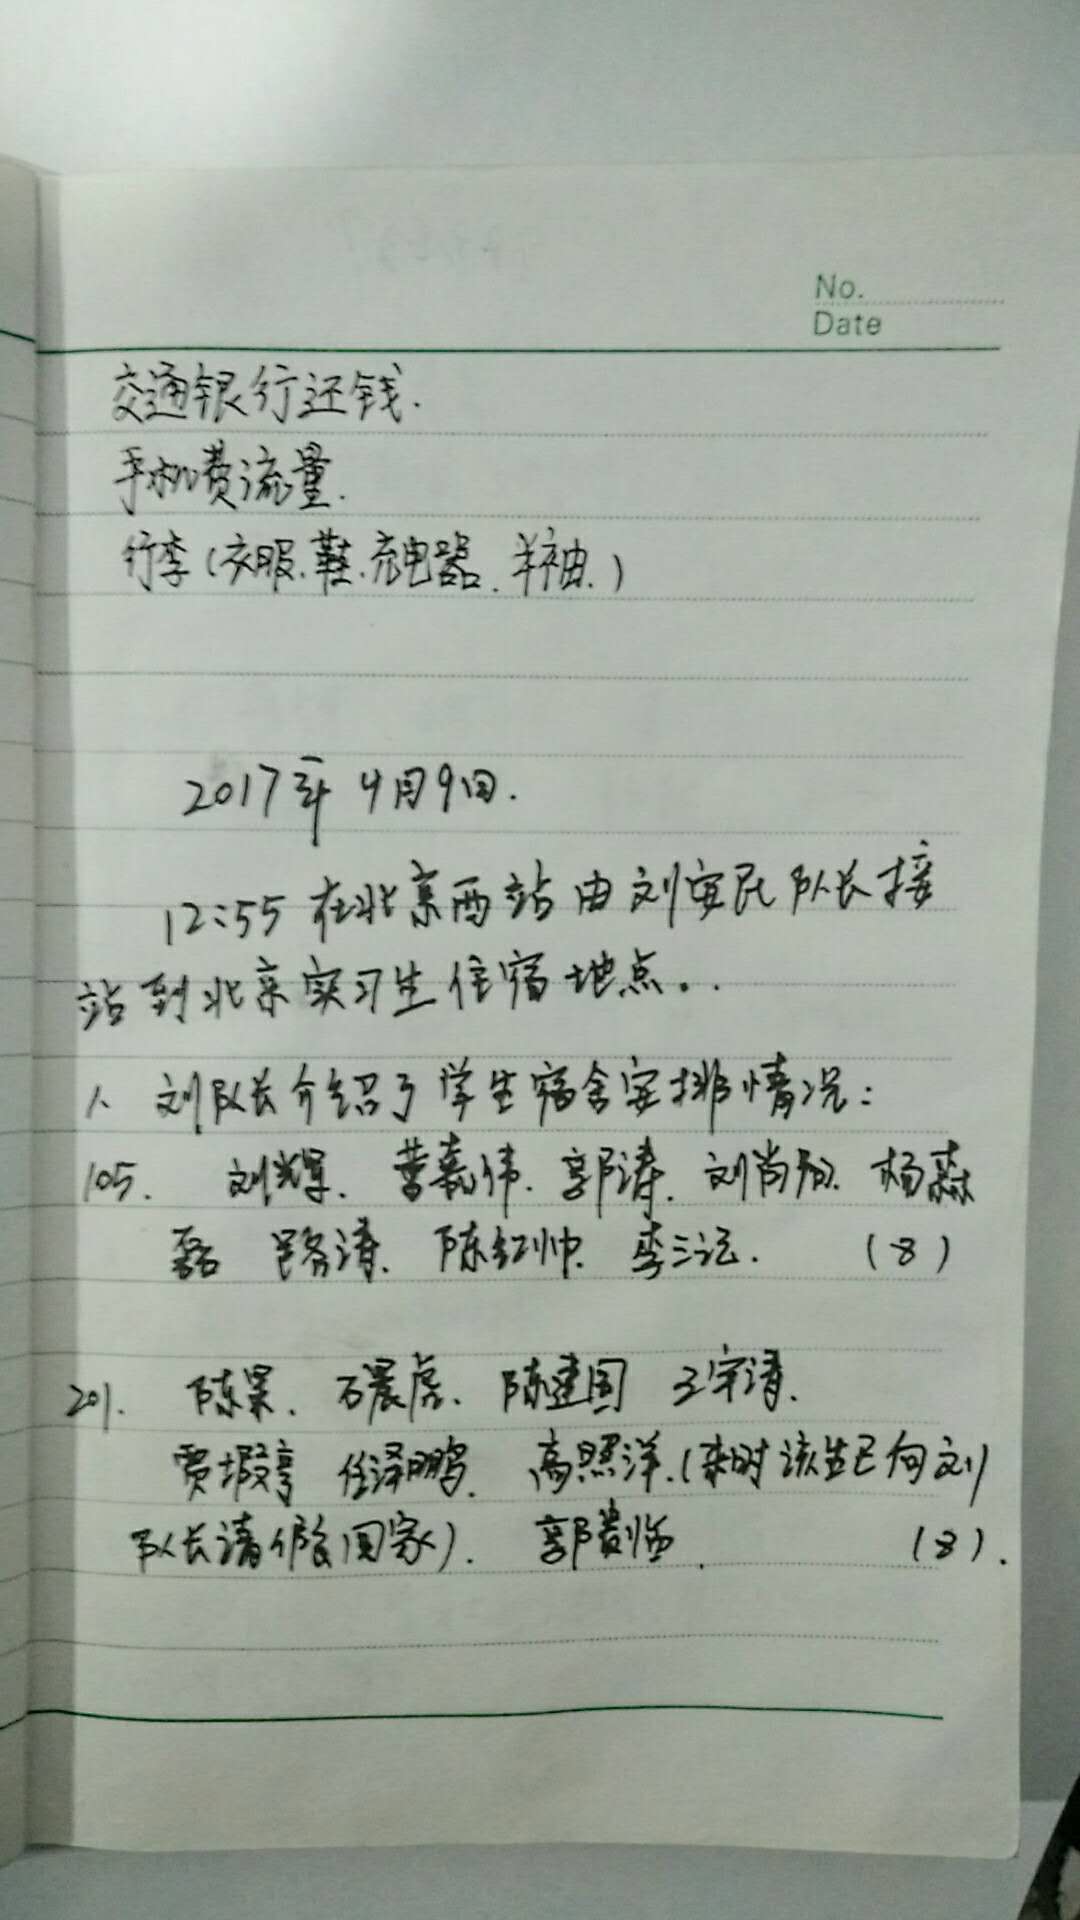 No.
Date
交通银行还钱.
手机费流量.
行李(衣服.鞋.充电器.半袖.)
2017年4月9日.
12:55在北京西站由刘安民队长接
站到北京实习生住宿地点..
1、刘队长介绍了学生宿舍安排情况:
105. 刘辉. 曹嘉伟. 郭涛. 刘尚 杨森
磊 路涛. 陈红帅. 李三 (8)
201. 陈 石晨虎. 陈建国 王宇清.
贾 任泽鹏. 高照洋.(来时该生已向刘
队长请假回家). 郭 (8).